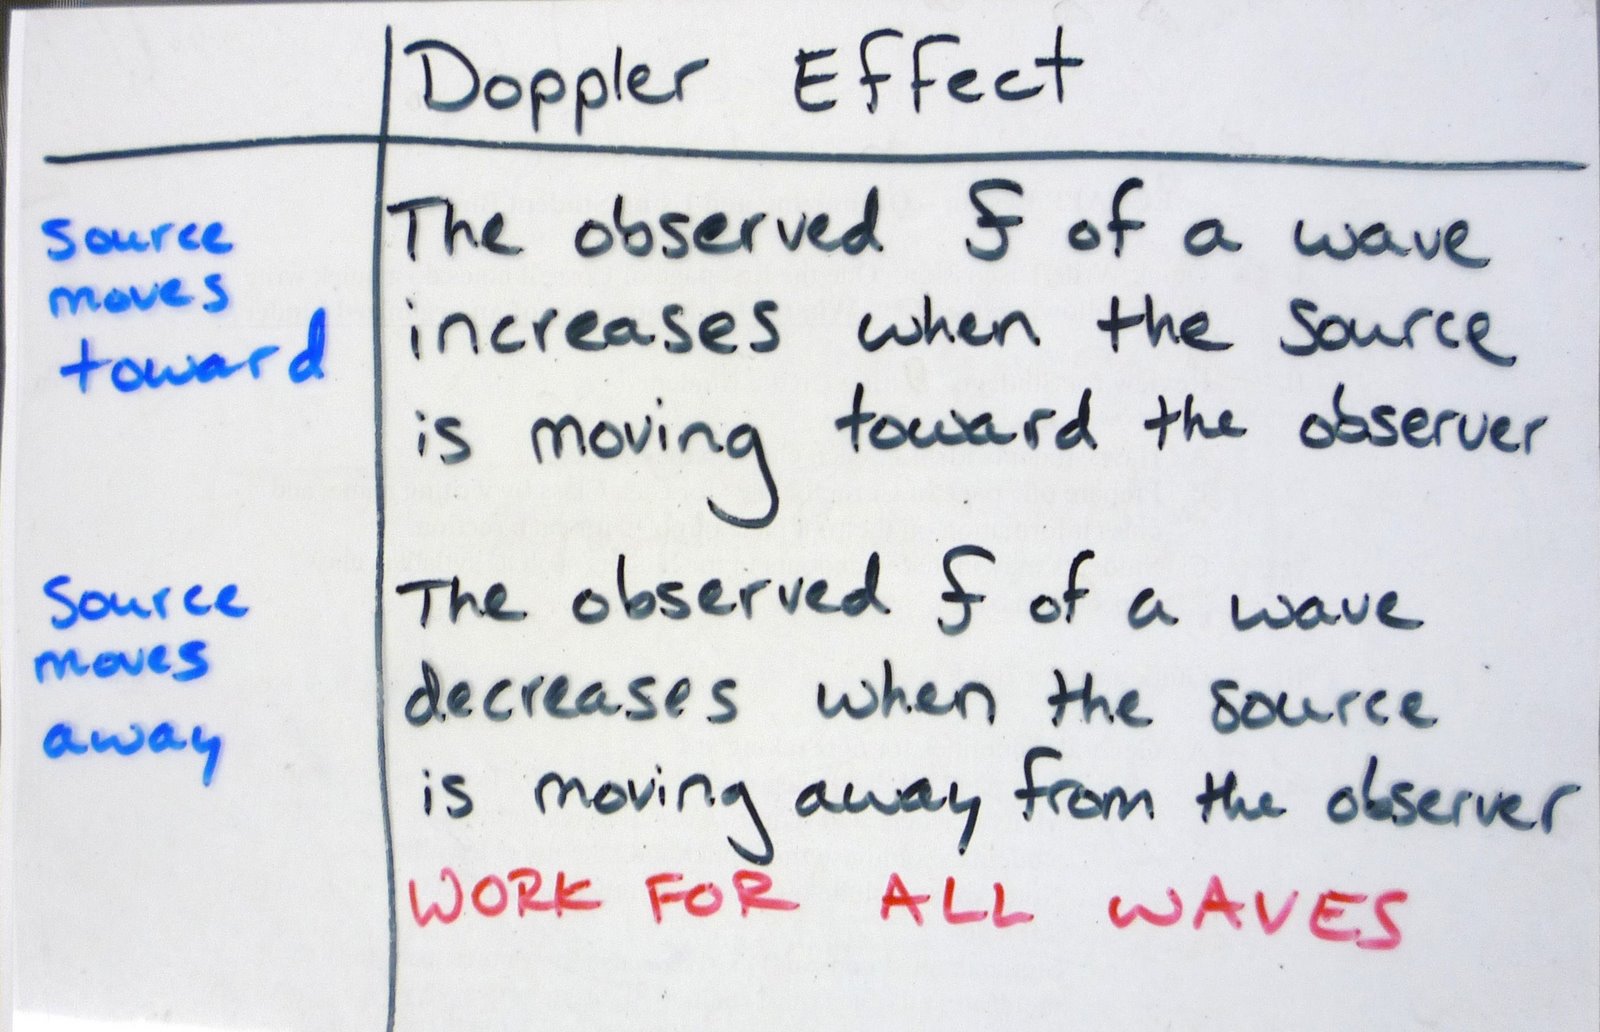 Doppler Effect
source
moves
toward
The observed f of a wave
increases when the source
is moving toward the observer
Source
moves
away
The observed f of a wave
decreases when the source
is moving away from the observer
WORK FOR ALL WAVES